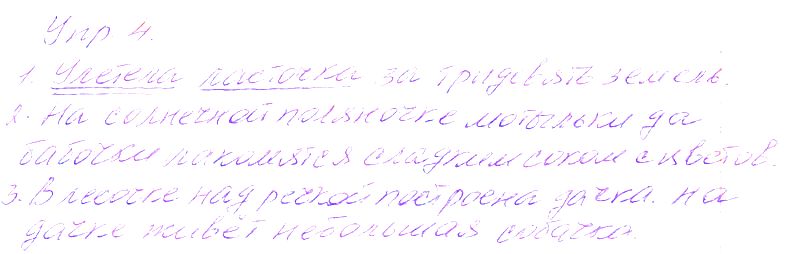 Упр 4.
1. Улетела ласточка за тридевять земель.
2. На солнечной поляночке мотыльки да
бабочки лакомятся сладким соком с цветов.
3. В лесочке над речкой построена дачка. На
дачке живёт небольшая собачка.